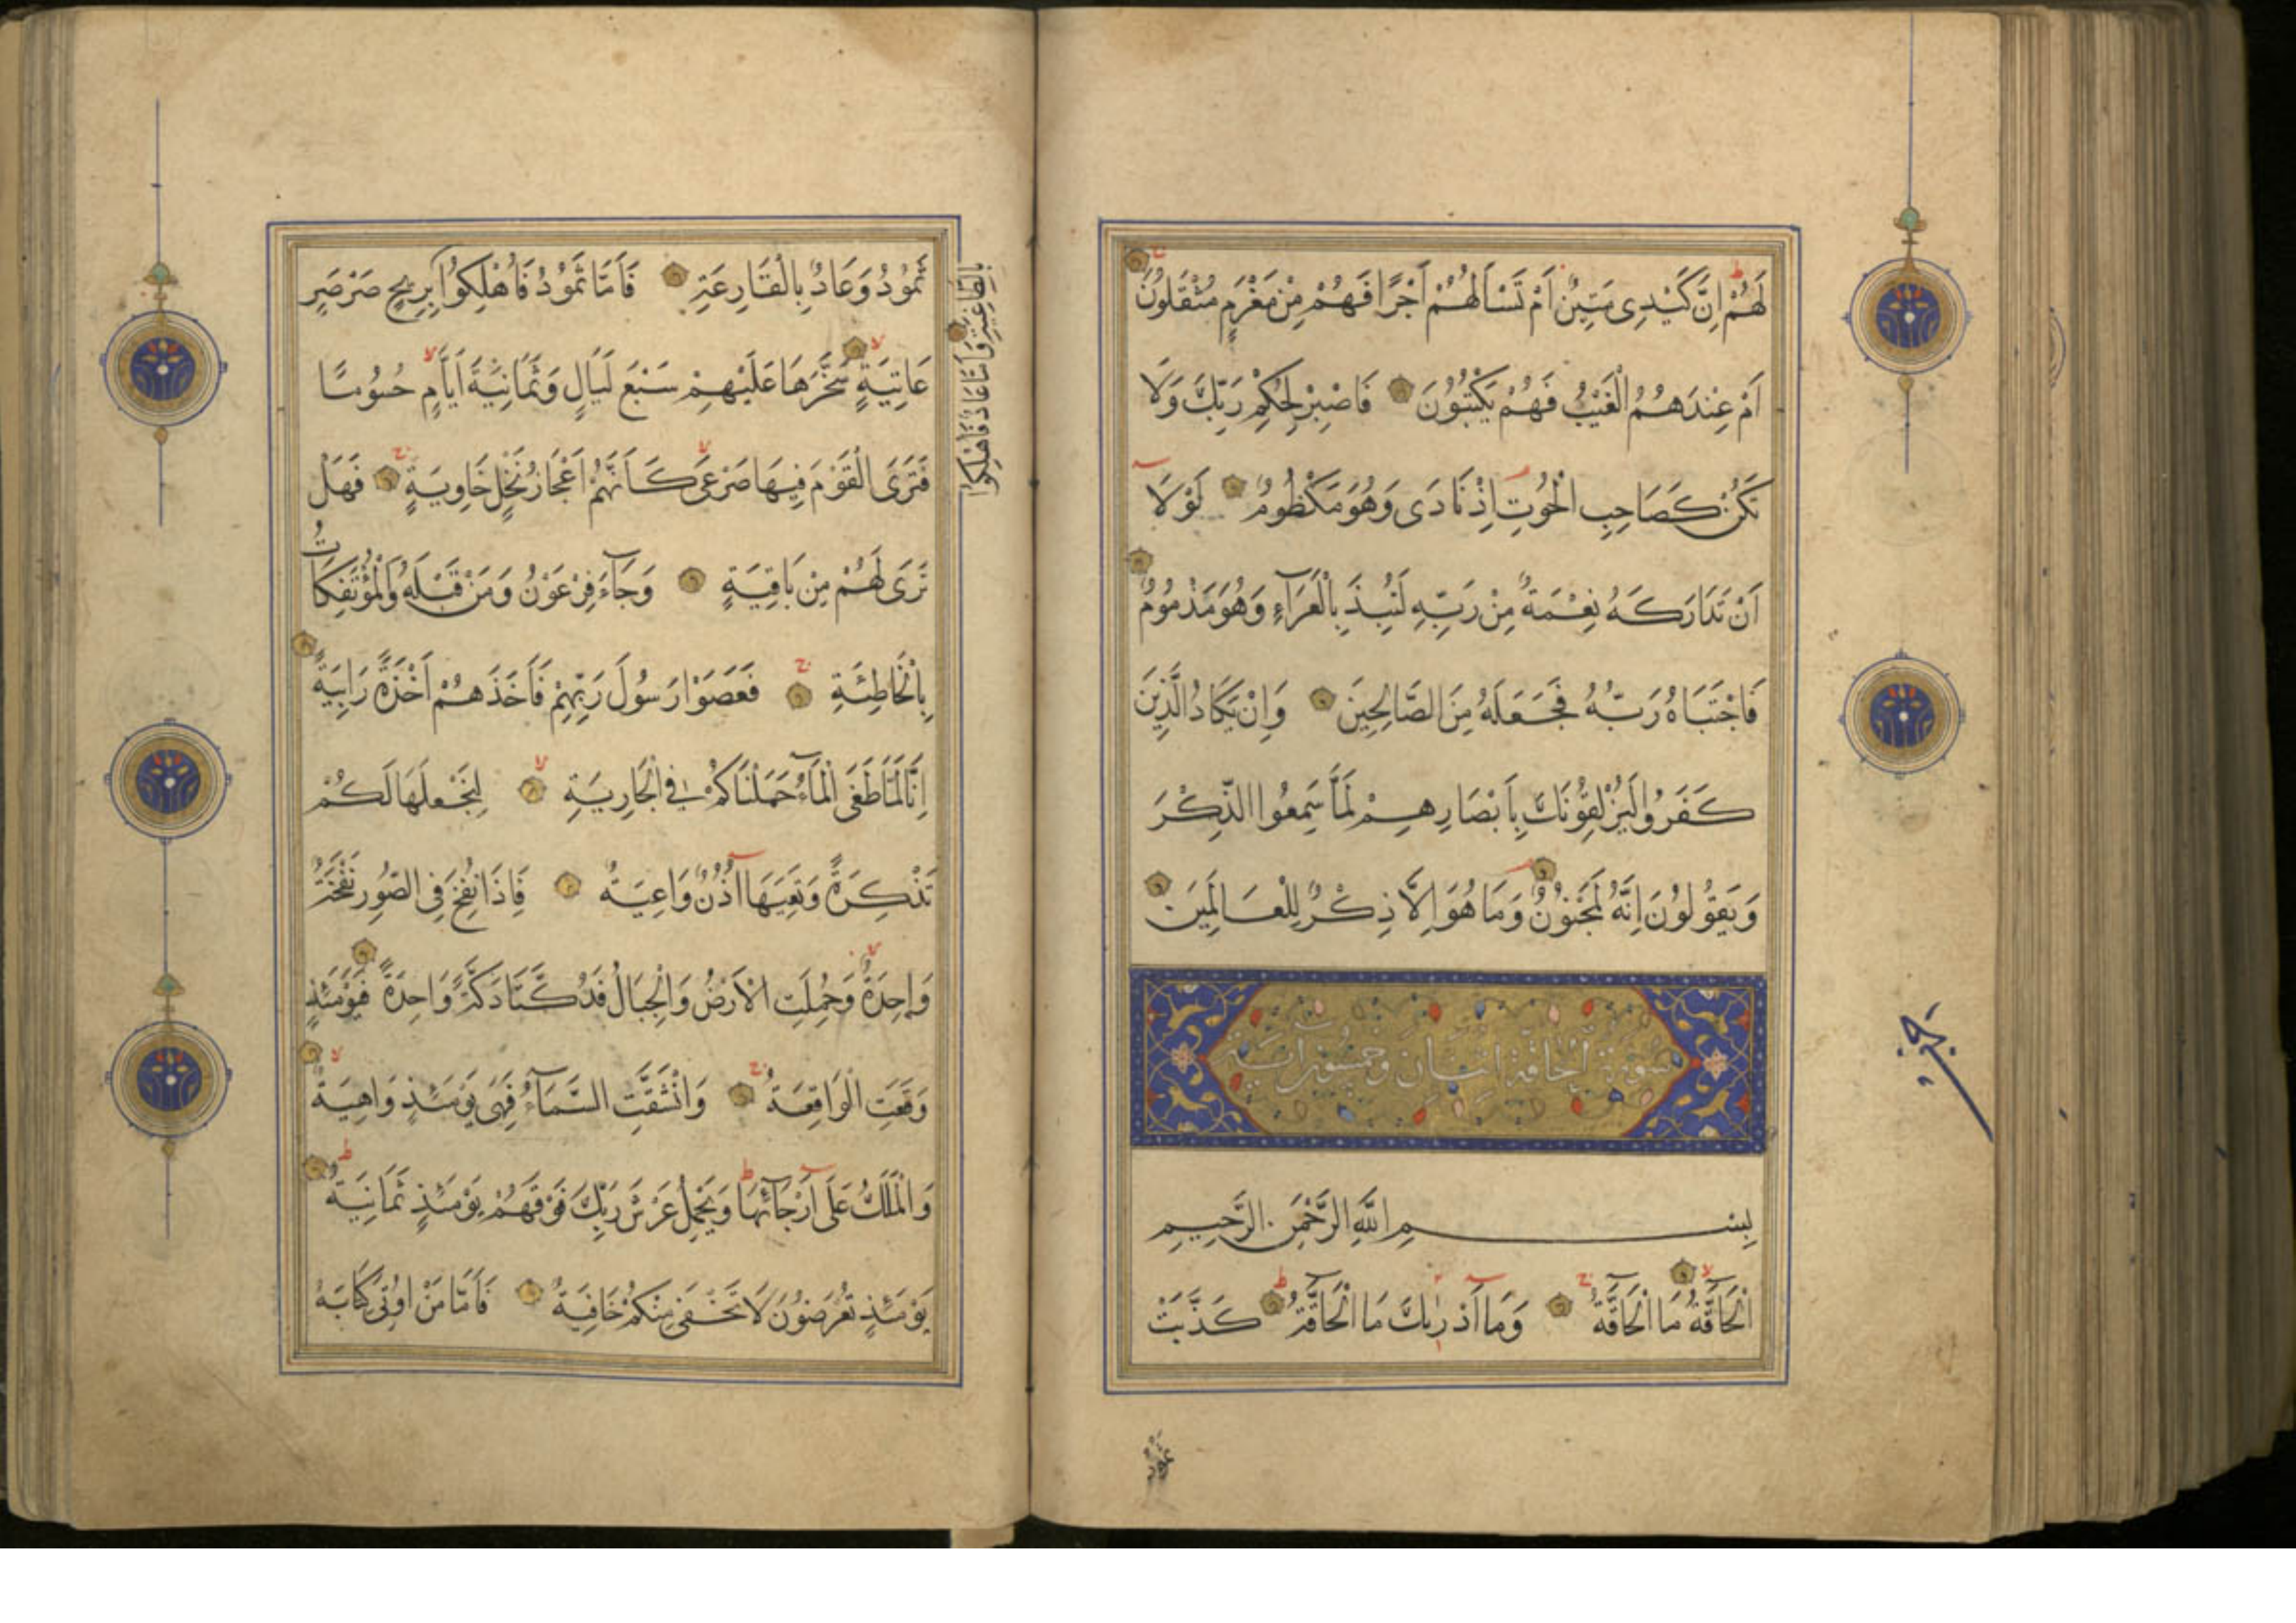 لَهُمْ اِنَّ كَيْدِى مَتِينٌ اَمْ تَسْاَلُهُمْ اَجْرًا فَهُمْ مِنْ مَغْرَمٍ مُثْقَلُونَ
اَمْ عِنْدَهُمُ الْغَيْبُ فَهُمْ يَكْتُبُونَ فَاصْبِرْ لِحُكْمِ رَبِّكَ وَلَا
تَكُنْ كَصَاحِبِ الْحُوتِ اِذْ نَادَى وَهُوَ مَكْظُومٌ لَوْلَا
اَنْ تَدَارَكَهُ نِعْمَةٌ مِنْ رَبِّهِ لَنُبِذَ بِالْعَرَآءِ وَهُوَ مَذْمُومٌ
فَاجْتَبَاهُ رَبُّهُ فَجَعَلَهُ مِنَ الصَّالِحِينَ وَاِنْ يَكَادُ الَّذِينَ
كَفَرُوا لَيُزْلِقُونَكَ بِاَبْصَارِهِمْ لَمَّا سَمِعُوا الذِّكْرَ
وَيَقُولُونَ اِنَّهُ لَمَجْنُونٌ وَمَا هُوَ اِلَّا ذِكْرٌ لِلْعَالَمِينَ
سورة الحاقة اثنتان وخمسون اية
بِسْمِ اللّٰهِ الرَّحْمٰنِ الرَّحِيمِ
اَلْحَاقَّةُ مَا الْحَاقَّةُ وَمَا اَدْرٰيكَ مَا الْحَاقَّةُ كَذَّبَتْ
ثمود
ثَمُودُ وَعَادٌ بِالْقَارِعَةِ فَاَمَّا ثَمُودُ فَاُهْلِكُوا بِرِيحٍ صَرْصَرٍ
بِالطَّاغِيَةِ وَاَمَّا عَادٌ فَاُهْلِكُوا
عَاتِيَةٍ سَخَّرَهَا عَلَيْهِمْ سَبْعَ لَيَالٍ وَثَمَانِيَةَ اَيَّامٍ حُسُومًا
فَتَرَى الْقَوْمَ فِيهَا صَرْعَى كَاَنَّهُمْ اَعْجَازُ نَخْلٍ خَاوِيَةٍ فَهَلْ
تَرَى لَهُمْ مِنْ بَاقِيَةٍ وَجَآءَ فِرْعَوْنُ وَمَنْ قَبْلَهُ وَالْمُؤْتَفِكَاتُ
بِالْخَاطِئَةِ فَعَصَوْا رَسُولَ رَبِّهِمْ فَاَخَذَهُمْ اَخْذَةً رَابِيَةً
اِنَّا لَمَّا طَغَى الْمَآءُ حَمَلْنَاكُمْ فِى الْجَارِيَةِ لِنَجْعَلَهَا لَكُمْ
تَذْكِرَةً وَتَعِيَهَا اُذُنٌ وَاعِيَةٌ فَاِذَا نُفِخَ فِى الصُّورِ نَفْخَةٌ
وَاحِدَةٌ وَحُمِلَتِ الْاَرْضُ وَالْجِبَالُ فَدُكَّتَا دَكَّةً وَاحِدَةً فَيَوْمَئِذٍ
وَقَعَتِ الْوَاقِعَةُ وَانْشَقَّتِ السَّمَآءُ فَهِىَ يَوْمَئِذٍ وَاهِيَةٌ
وَالْمَلَكُ عَلَى اَرْجَآئِهَا وَيَحْمِلُ عَرْشَ رَبِّكَ فَوْقَهُمْ يَوْمَئِذٍ ثَمَانِيَةٌ
يَوْمَئِذٍ تُعْرَضُونَ لَا تَخْفَى مِنْكُمْ خَافِيَةٌ فَاَمَّا مَنْ اُوتِىَ كِتَابَهُ